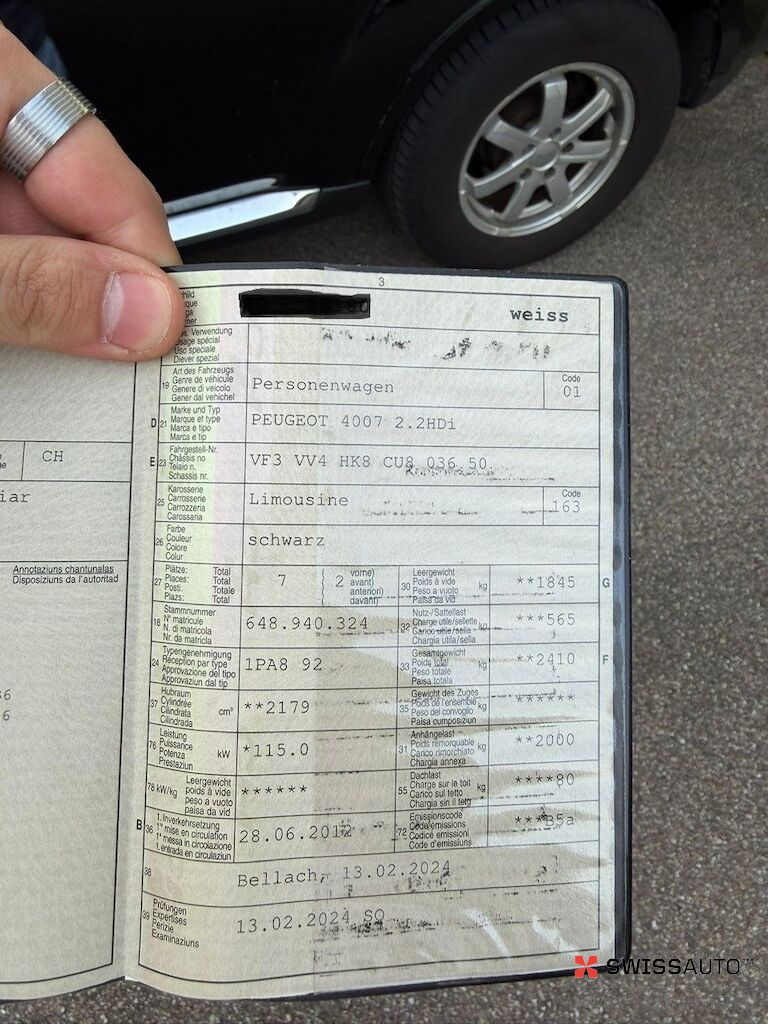 3
weiss
Verwendung
Usage spécial
Uso speciale
Diever spezial
19
Art des Fahrzeugs
Genre de véhicule
Genere di veicolo
Gener dal vehichel
Personenwagen
Code
01
D 21
Marke und Typ
Marque et type
Marca e tipo
Marca e tip
PEUGEOT 4007 2.2HDi
E 23
Fahrgestell-Nr.
Châssis no
Telaio n.
Schassis nr.
VF3 VV4 HK8 CU8 036 50
25
Karosserie
Carrosserie
Carrozzeria
Carossaria
Limousine
Code
163
26
Farbe
Couleur
Colore
Colur
schwarz
27
Plätze: Total
Places: Total
Posti: Totale
Plazs: Total
7
( 2
vorne)
avant)
anteriori)
davant)
30
Leergewicht
Poids à vide
Peso a vuoto
Paisa da vid
kg
**1845
G
18
Stammnummer
N° matricule
N. di matricola
Nr. da matricla
648.940.324
32
Nutz-/Sattellast
Charge utile/sellette
Carico utile/sella
Chargia utila/sella
kg
***565
24
Typengenehmigung
Réception par type
Approvazione del tipo
Approvaziun dal tip
1PA8 92
33
Gesamtgewicht
Poids total
Peso totale
Paisa totala
kg
**2410
F
37
Hubraum
Cylindrée
Cilindrata
Cilindrada
cm³
**2179
35
Gewicht des Zuges
Poids de l'ensemble
Peso del convoglio
Paisa cumposiziun
kg
******
76
Leistung
Puissance
Potenza
Prestaziun
kW
*115.0
31
Anhängelast
Poids remorquable
Carico rimorchiato
Chargia annexa
kg
**2000
78 kW/kg
Leergewicht
poids à vide
peso a vuoto
paisa da vid
******
55
Dachlast
Charge sur le toit
Carico sul tetto
Chargia sin il tetg
kg
****80
B 36
1. Inverkehrsetzung
1re mise en circulation
1a messa in circolazione
1. entrada en circulaziun
28.06.2012
72
Emissionscode
Code émissions
Codice emissioni
Code d'emissiuns
***B5a
38
Bellach, 13.02.2024
39
Prüfungen
Expertises
Perizie
Examinaziuns
13.02.2024 SO
CH
iar
Annotaziuns chantunalas
Disposiziuns da l'autoritad
6
6
SWISSAUTO™